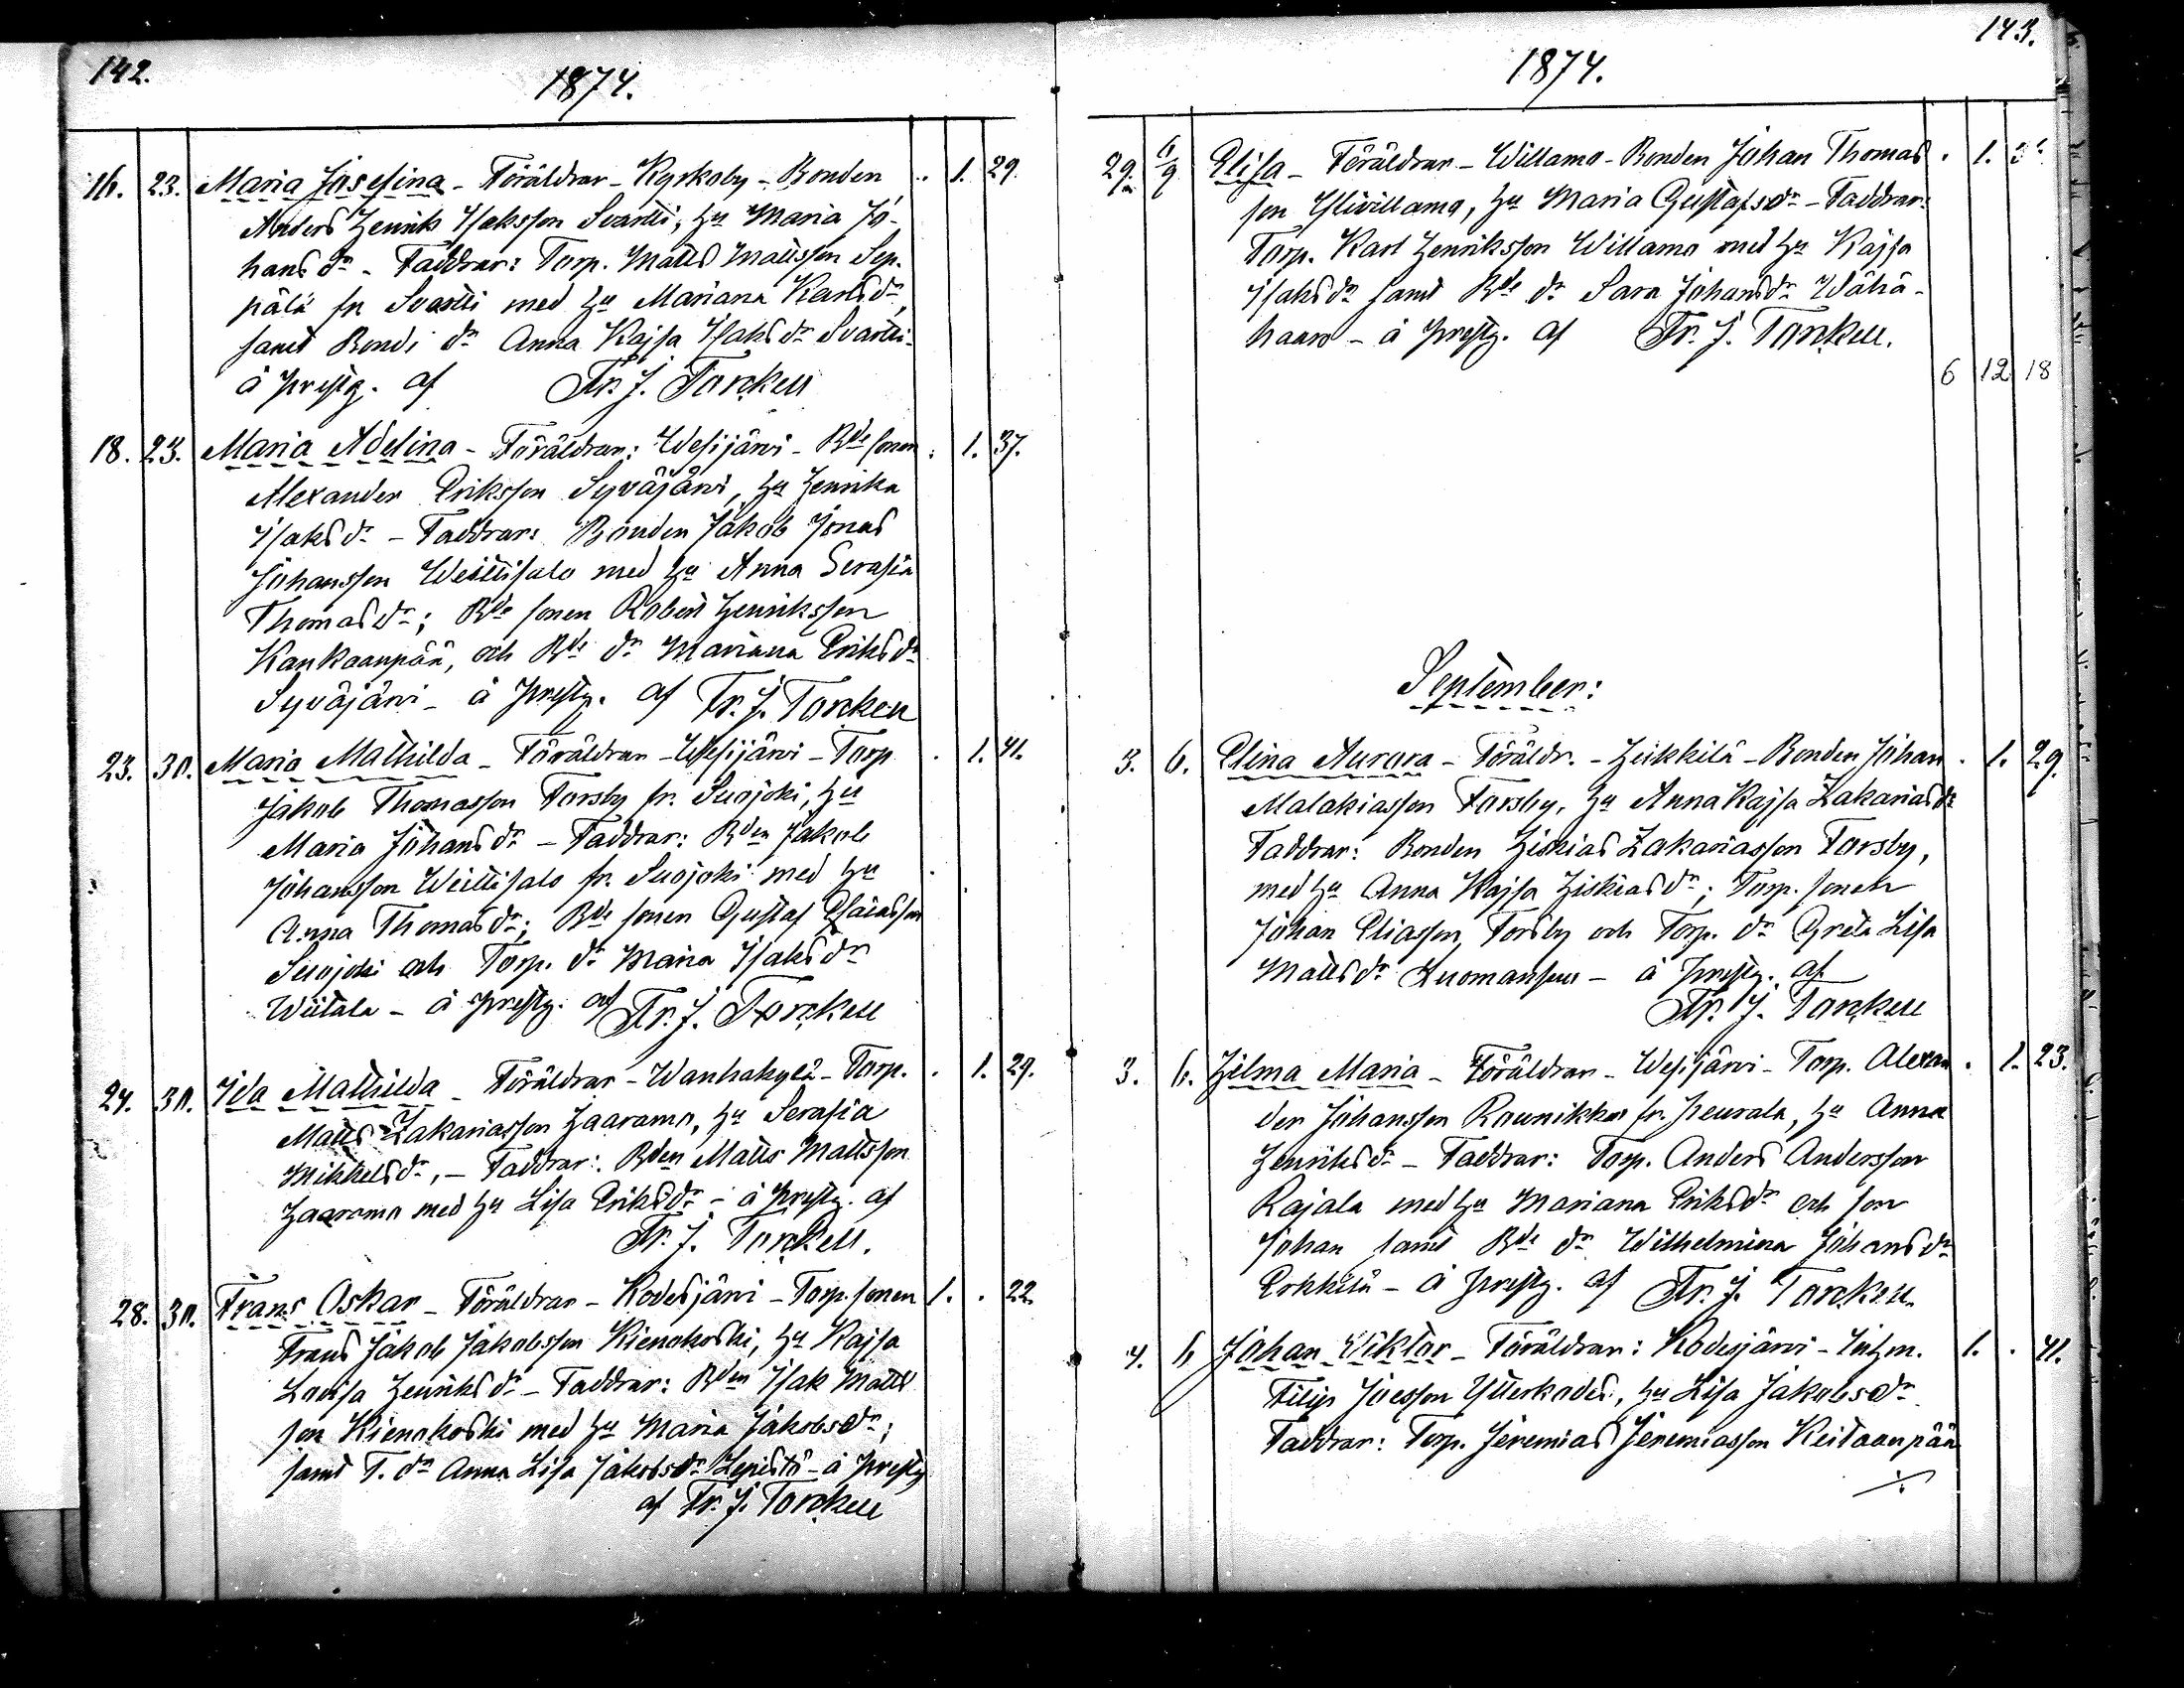 142.
1874.
16. 23. Maria Josefina - Föräldrar - Kyrkoby - Bonden . . 1. 29.
Anders Henrik Isaksson Svartti, Hu Maria Jo-
hansdr - Faddrar: Torp. Matts Mattsson Sep-
pälä fr Svartti med Hu Mariana Karlsdr,
samt Bonde dr Anna Kajsa Isaksdr Svartti-
å prestg. af Fr. J. Torckell
18. 23. Maria Adelina - Föräldrar: Wesijärvi - Bde sonen . 1. 37.
Alexander Eriksson Syväjärvi, Hu Henrika
Isaksdr - Faddrar: Bonden Jakob Jonas
Johansson Weittisalo med Hu Anna Serafia
Thomasdr; Bde sonen Robert Henriksson
Kankaanpää, och Bde dr Mariana Eriksdr
Syväjärvi - å prestg. af Fr. J. Torckell
23. 30. Maria Mathilda - Föräldrar - Wesijärvi - Torp . 1. 41.
Jakob Thomasson Forsby fr. Suojoki, Hu
Maria Johansdr - Faddrar: Bden Jakob
Johansson Weittisalo fr. Suojoki med Hu
Anna Thomasdr; Bde sonen Gustaf Esaiasson
Suojoki och Torp. dr Maria Isaksdr
Wiitala - å prestg. af Fr. J. Torckell
24. 30. Ida Mathilda - Föräldrar - Wanhakylä - Torp. . 1. 29.
Matts Zakariasson Haarama, Hu Serafia
Mikkelsdr, - Faddrar: Bden Matts Mattsson
Haarama med Hu Lisa Eriksdr - å prestg. af
Fr. J. Torckell.
28. 30. Frans Oskar - Föräldrar - Kodesjärvi - Torp. sonen 1. . 22.
Frans Jakob Jakobsson Kienokoski, Hu Kajsa
Lovisa Henriksdr - Faddrar: Bden Isak Matts
son Kienokoski med Hu Maria Jakobsdr;
samt T. dr Anna Lisa Jakobsdr Lepistö - å prestg
af Fr. J. Torckell
143.
1874.
29. 6/9 Elisa - Föräldrar - Willamo - Bonden Johan Thomas . 1.
son Yliwillamo, Hu Maria Gustafsdr - Faddrar:
Torp. Karl Henriksson Willamo med Hu Kajsa
Isaksdr samt Bde dr Sara Johansdr Wähä-
haaro - å prestg. af Fr. J. Torckell.
6 12 18
September:
3. 6. Elina Aurora - Föräldr. - Heikkilä - Bonden Johan . 1. 29.
Malakiasson Forsby, Hu Anna Kajsa Zakariasdr
Faddrar: Bonden Hiskias Zakariasson Forsby,
med Hu Anna Kajsa Hiskiasdr; Torp. sonen
Johan Eliasson Forsby och Torp. dr Greta Lisa
Mattsdr Luomansuu - å prestg. af
Fr. J. Torckell
3. 6. Hilma Maria - Föräldrar - Wesijärvi - Torp. Alexan . 1. 23.
der Johansson Raunikko fr. Peurala, Hu Anna
Henriksdr - Faddrar: Torp. Anders Andersson
Rajala med Hu Mariana Eriksdr och son
Johan samt Bde dr Wilhelmina Johansdr
Erkkilä - å prestg. af Fr. J. Torckell.
4. 6 Johan Wiktor - Föräldrar: Kodesjärvi - Inhm. 1. . 41.
Filip Joelsson Ytterkodes, Hu Lisa Jakobsdr
Faddrar: Torp. Jeremias Jeremiasson Keitaanpää